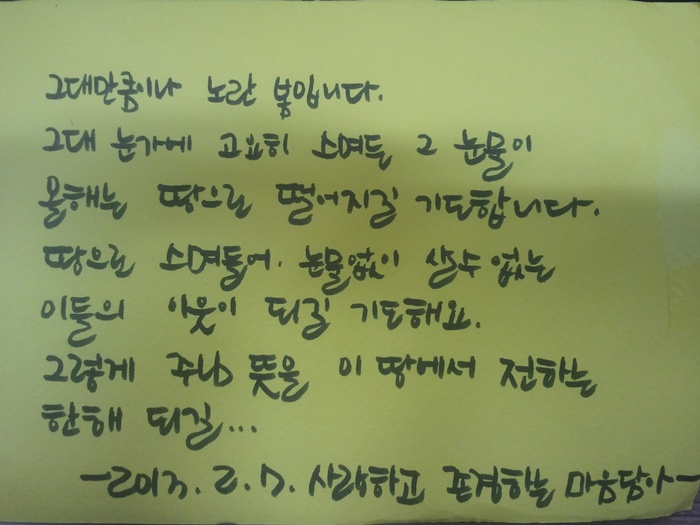 그대만큼이나 노란 봄입니다.
그대 눈가에 고요히 스며든 그 눈물이
올해는 땅으로 떨어지길 기도합니다.
땅으로 스며들어. 눈물없이 살수 없는
이들의 이웃이 되길 기도해요.
그렇게 주님 뜻을 이 땅에서 전하는
한해 되길...
-2013. 2. 7. 사랑하고 존경하는 마음담아-